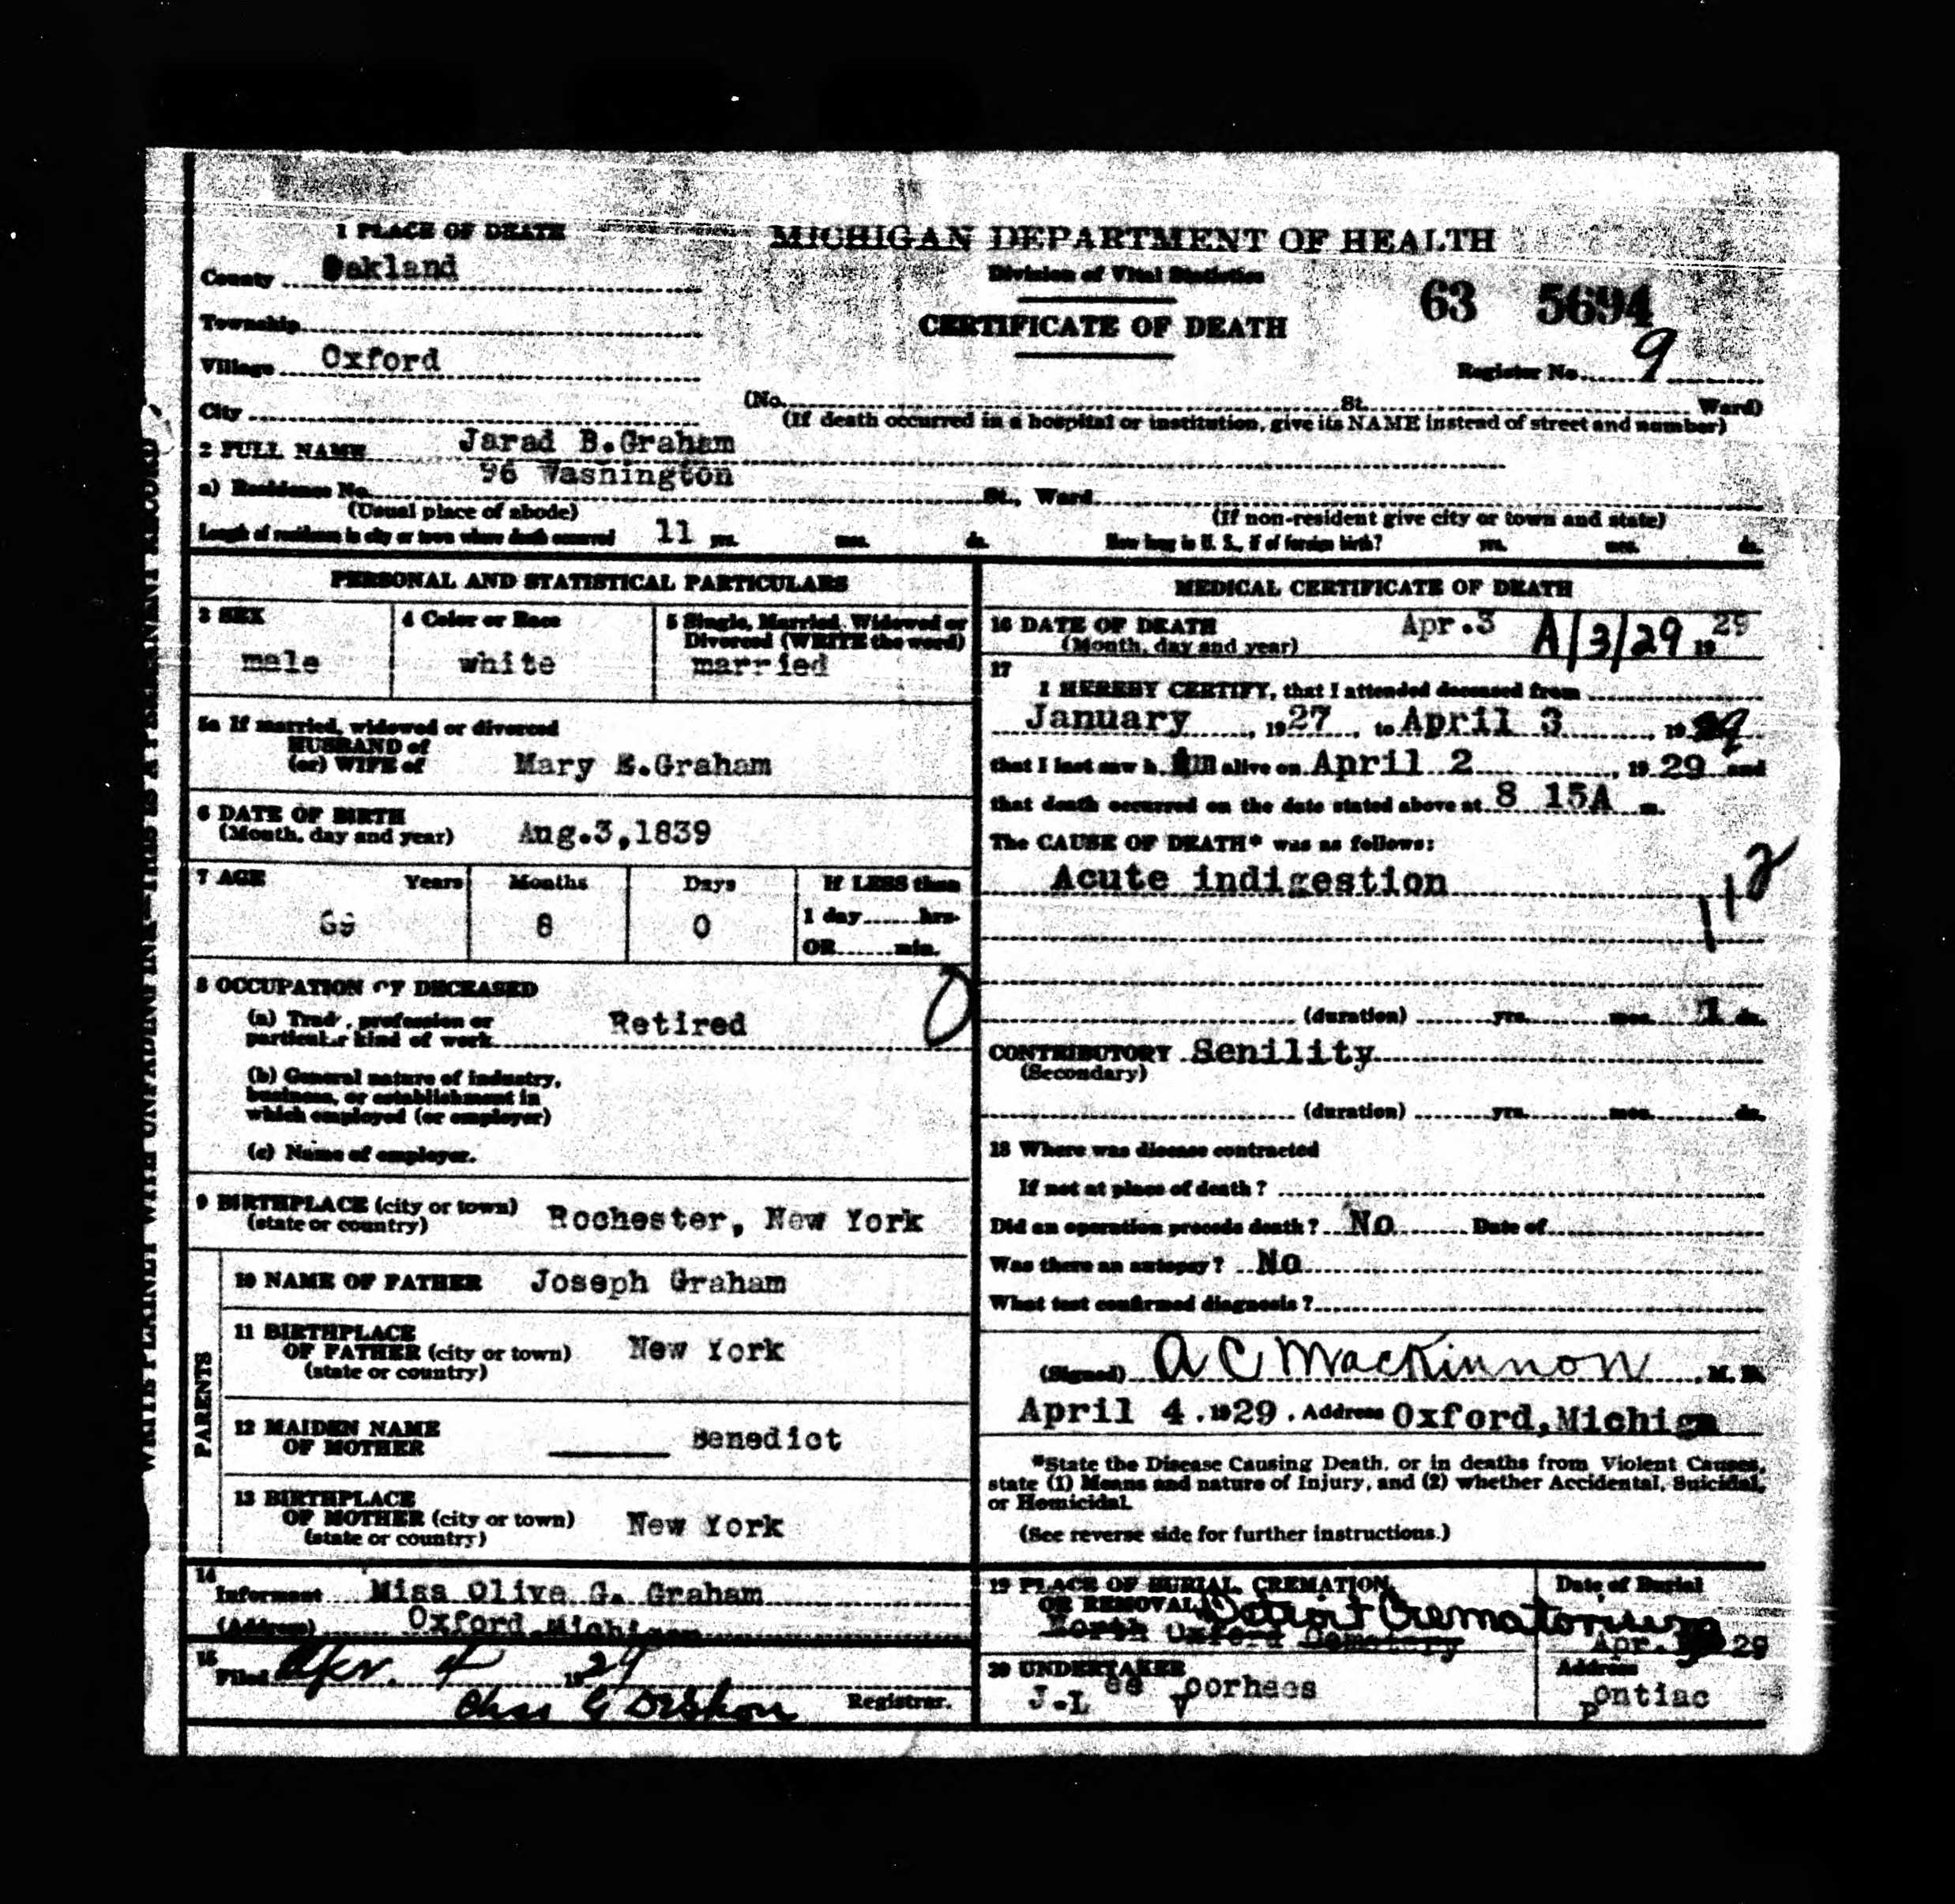 1 PLACE OF DEATH
MICHIGAN DEPARTMENT OF HEALTH
County Oakland
Division of Vital Statistics
63 5694
Township
CERTIFICATE OF DEATH
Village Oxford
Register No. 9
City
(No. St. Ward)
(If death occurred in a hospital or institution, give its NAME instead of street and number)
2 FULL NAME Jarad B.Graham
a) Residence No. 96 Washington St., Ward
(Usual place of abode)
(If non-resident give city or town and state)
Length of residence in city or town where death occurred 11 yrs. mos. ds.
How long in U. S., if of foreign birth? yrs. mos. ds.
PERSONAL AND STATISTICAL PARTICULARS
3 SEX
male
4 Color or Race
white
5 Single, Married, Widowed or
Divorced (WRITE the word)
married
5a If married, widowed or divorced
HUSBAND of
(or) WIFE of Mary E.Graham
6 DATE OF BIRTH
(Month, day and year) Aug.3,1839
7 AGE Years Months Days
If LESS than
1 day hrs.
OR min.
8 0
8 OCCUPATION OF DECEASED
(a) Trade, profession or
particular kind of work Retired
(b) General nature of industry,
business, or establishment in
which employed (or employer)
(c) Name of employer.
9 BIRTHPLACE (city or town)
(state or country) Rochester, New York
PARENTS
10 NAME OF FATHER Joseph Graham
11 BIRTHPLACE
OF FATHER (city or town) New York
(state or country)
12 MAIDEN NAME
OF MOTHER Benedict
13 BIRTHPLACE
OF MOTHER (city or town) New York
(state or country)
14
Informant Miss Olive G. Graham
(Address) Oxford Michigan
15
Filed Apr. 4 1929
Registrar.
MEDICAL CERTIFICATE OF DEATH
16 DATE OF DEATH
(Month, day and year) Apr.3 A/3/29 19 29
17
I HEREBY CERTIFY, that I attended deceased from
January, 1927, to April 3, 1929
that I last saw h im alive on April 2, 19 29 and
that death occurred on the date stated above at 8 15A m.
The CAUSE OF DEATH* was as follows:
Acute indigestion
112
(duration) yrs. mos. 1 ds.
CONTRIBUTORY Senility
(Secondary)
(duration) yrs. mos. ds.
18 Where was disease contracted
If not at place of death?
Did an operation precede death? No Date of
Was there an autopsy? No
What test confirmed diagnosis?
(Signed) A C MacKinnon, M. D.
April 4. 1929. Address Oxford,Michign
*State the Disease Causing Death, or in deaths from Violent Causes,
state (1) Means and nature of Injury, and (2) whether Accidental, Suicidal,
or Homicidal.
(See reverse side for further instructions.)
19 PLACE OF BURIAL, CREMATION,
OR REMOVAL Detroit Crematorium
North Oxford Cemetery
Date of Burial
Apr. 29
20 UNDERTAKER
J.Lee Voorhees
Address
Pontiac